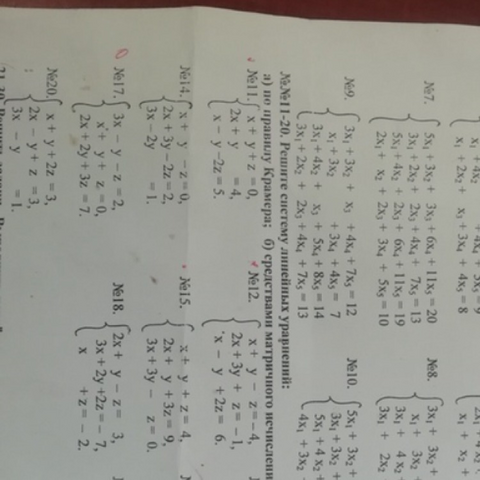 + 4x₄ + 5x₅ = 9
x₁ + 2x₂ + x₃ + 3x₄ + 4x₅ = 8
№7. 5x₁ + 3x₂ + 3x₃ + 6x₄ + 11x₅ = 20
3x₁ + 2x₂ + 2x₃ + 4x₄ + 7x₅ = 13
5x₁ + 4x₂ + 2x₃ + 6x₄ + 11x₅ = 19
2x₁ + x₂ + 2x₃ + 3x₄ + 5x₅ = 10
№8. 3x₁ + 3x₂
x₁ + 3x₂
3x₁ + 4x₂
3x₁ + 2x₂
№9. 3x₁ + 3x₂ + x₃ + 4x₄ + 7x₅ = 12
x₁ + 3x₂ + 3x₄ + 4x₅ = 7
3x₁ 4x₂ + x₃ + 5x₄ + 8x₅ = 14
3x₁ 2x₂ + 2x₃ + 4x₄ + 7x₅ = 13
№10. 5x₁ + 3x₂ +
3x₁ + 3x₂
5x₁ + 4x₂ +
4x₁ + 3x₂
№№11-20. Решите систему линейных уравнений:
а) по правилу Крамера; б) средствами матричного исчисления
№11. x + y + z = 0,
2x + y = 4,
x - y - 2z = 5.
№12. x + y - z = -4,
2x + 3y + z = -1,
x - y + 2z = 6.
№14. x + y - z = 0,
2x + 3y - 2z = 2,
3x - 2y = 1.
№15. x + y + z = 4,
2x + y + 3z = 9,
3x + 3y - z = 0.
№17. 3x - y - z = 2,
x + y + z = 0,
2x + 2y + 3z = 7.
№18. 2x + y - z = 3,
3x + 2y + 2z = -7,
x + z = -2.
№20. x + y + 2z = 3,
2x - y + z = 3,
3x - y = 1.